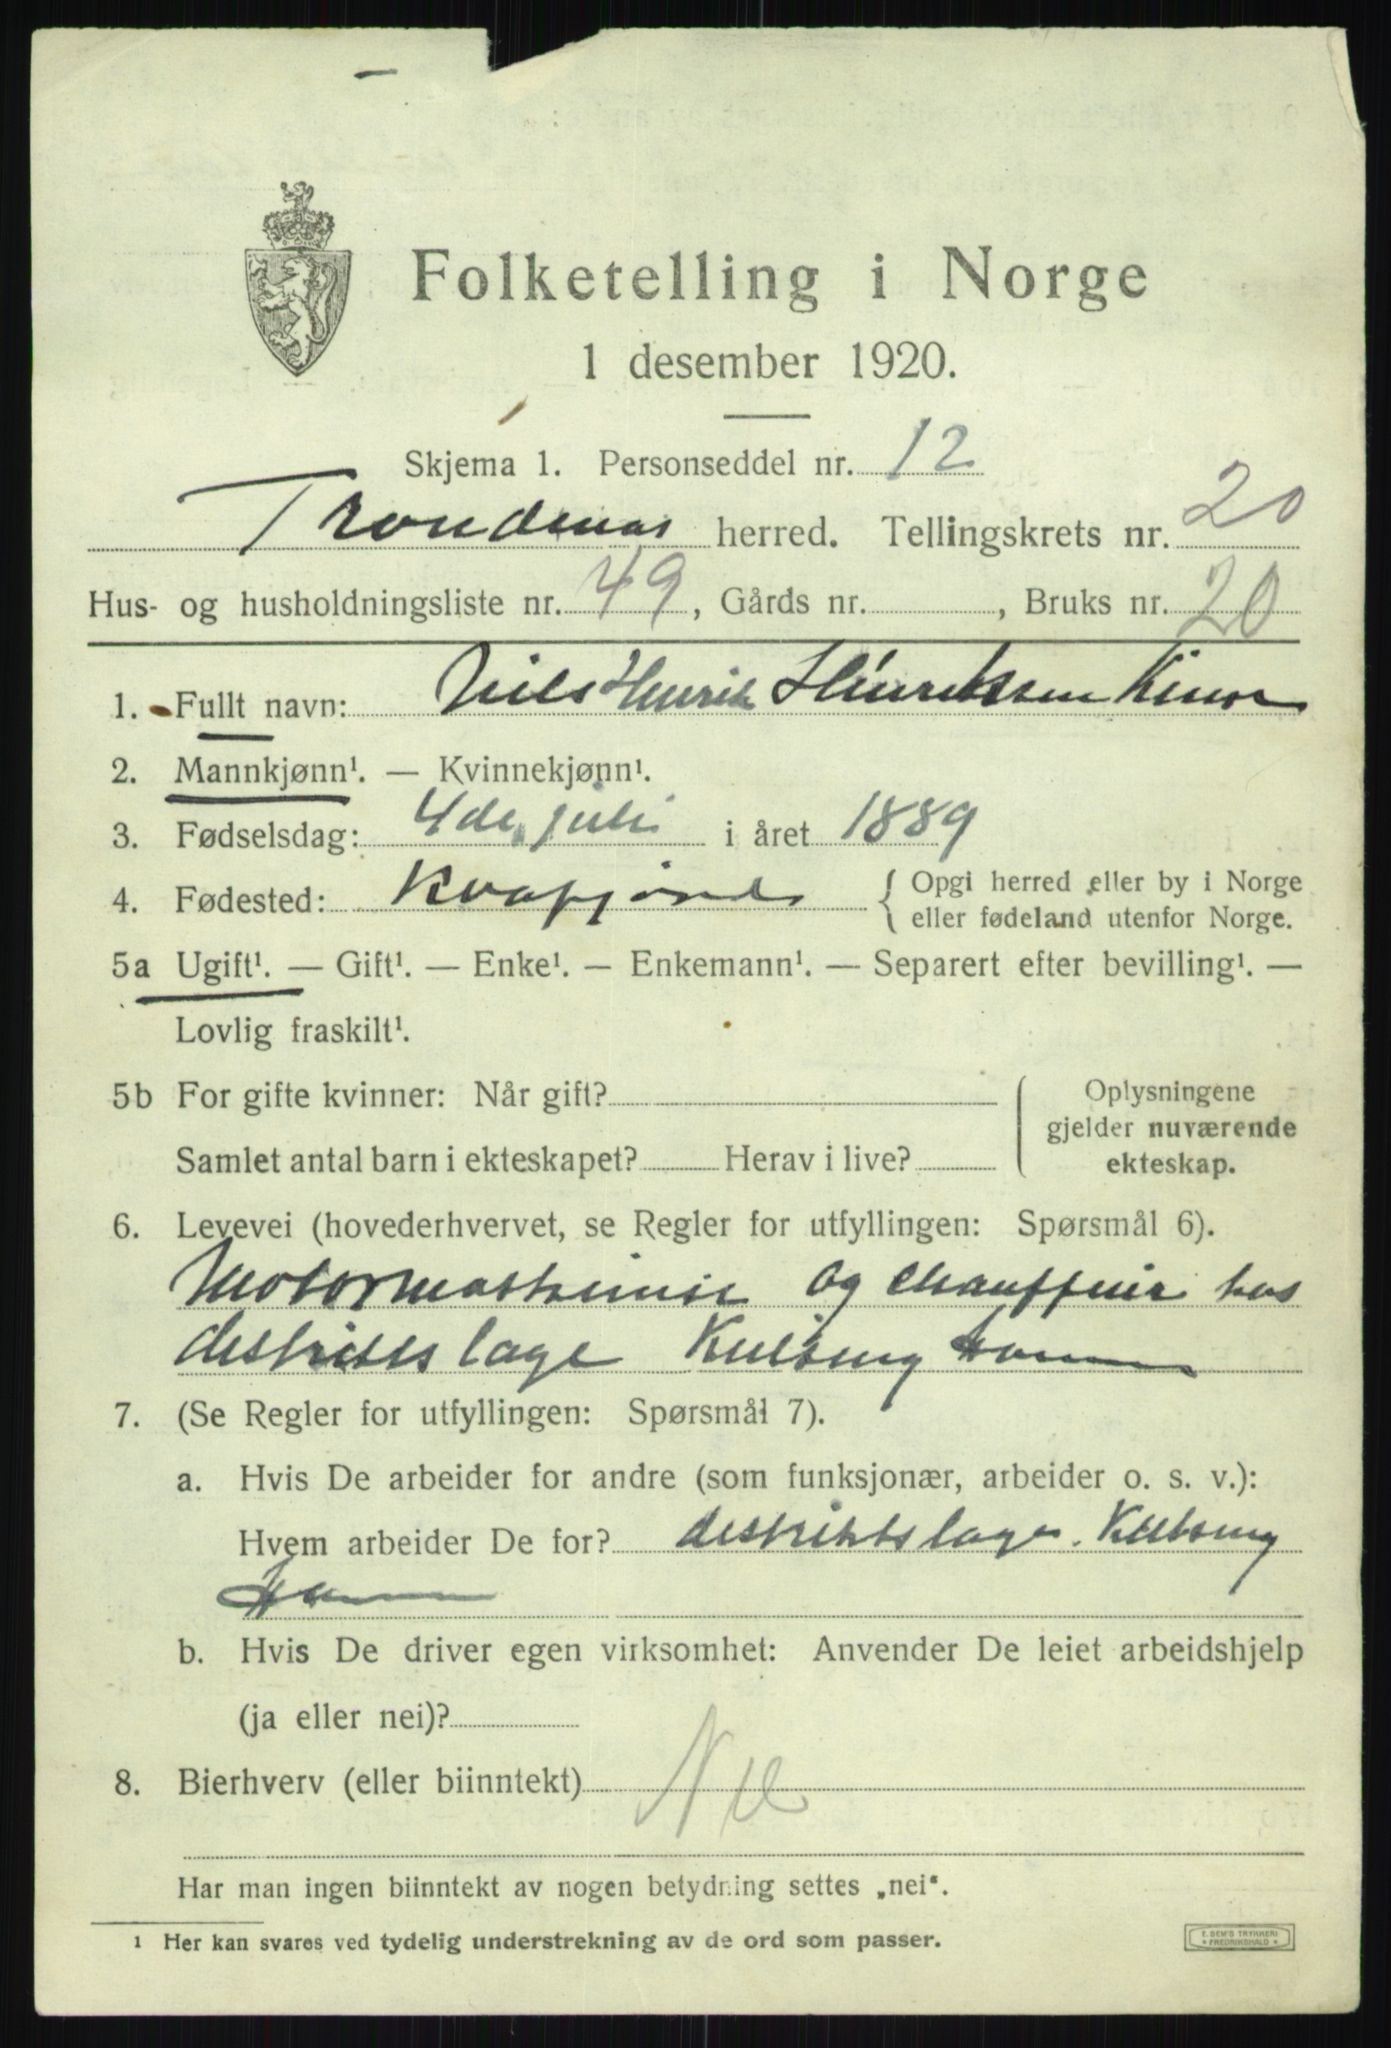 Folketelling i Norge
1 desember 1920.
Skjema 1. Personseddel nr. 12
Trondenas herred. Tellingskrets nr. 20
Hus- og husholdningsliste nr. 49, Gårds nr. , Bruks nr. 20
1. Fullt navn: Nils Henrik Henriksen
2. Mannkjønn¹. — Kvinnekjønn¹.
3. Fødselsdag: 4de juli i året 1889
4. Fødested: Kvæfjord { Opgi herred eller by i Norge
eller fødeland utenfor Norge.
5a Ugift¹. — Gift¹. — Enke¹. — Enkemann¹. — Separert efter bevilling¹. —
Lovlig fraskilt¹.
5b For gifte kvinner: Når gift?
Samlet antal barn i ekteskapet? Herav i live?
Oplysningene
gjelder nuværende
ekteskap.
6. Levevei (hovederhvervet, se Regler for utfyllingen: Spørsmål 6).
Motormaskinist og chauffeur hos
distriktslæge
7. (Se Regler for utfyllingen: Spørsmål 7).
a. Hvis De arbeider for andre (som funksjonær, arbeider o. s. v.):
Hvem arbeider De for? distriktslæge.
b. Hvis De driver egen virksomhet: Anvender De leiet arbeidshjelp
(ja eller nei)?
8. Bierhverv (eller biinntekt) Nei
Har man ingen biinntekt av nogen betydning settes „nei“.
¹ Her kan svares ved tydelig understrekning av de ord som passer.
E. SEM'S TRYKKERI
* FREDRIKSHALD *